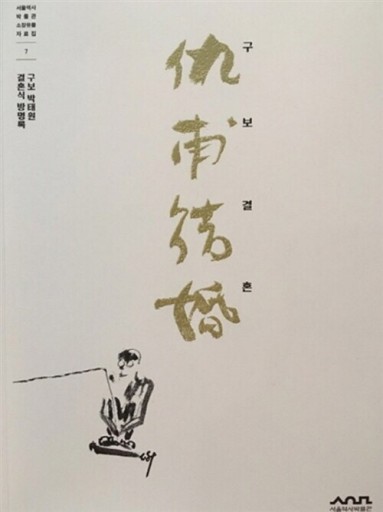 서울역사
박물관
소장유물
자료집
7
구보 박태원
결혼식 방명록
仇甫結婚
구보결혼
서울역사박물관